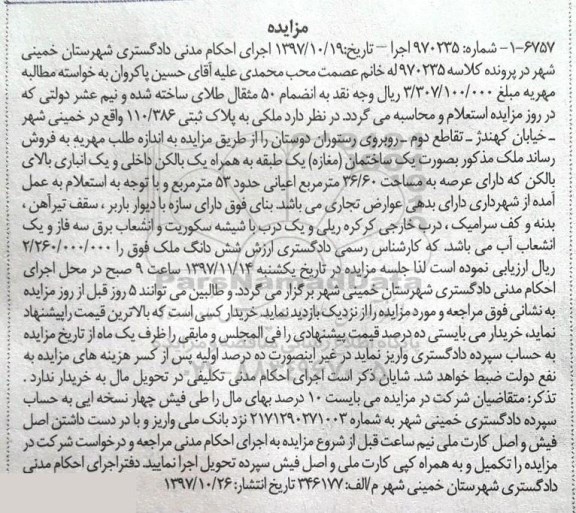 مزایده
۶۷۵۷-۱- شماره: ۹۷۰۲۳۵ اجرا – تاریخ:۱۳۹۷/۱۰/۱۹ اجرای احکام مدنی دادگستری شهرستان خمینی
شهر در پرونده کلاسه ۹۷۰۲۳۵ له خانم عصمت محب محمدی علیه آقای حسین پاکروان به خواسته مطالبه
مهریه مبلغ ۳/۳۰۷/۱۰۰/۰۰۰ ریال وجه نقد به انضمام ۵۰ مثقال طلای ساخته شده و نیم عشر دولتی که
در روز مزایده استعلام و محاسبه می گردد. در نظر دارد ملکی به پلاک ثبتی ۱۱۰/۳۸۶ واقع در خمینی شهر
ـ خیابان کهندژ ـ تقاطع دوم ـ روبروی رستوران دوستان را از طریق مزایده به اندازه طلب مهریه به فروش
رساند ملک مذکور بصورت یک ساختمان (مغازه) یک طبقه به همراه یک بالکن داخلی و یک انباری بالای
بالکن که دارای عرصه به مساحت ۳۶/۶۰ مترمربع اعیانی حدود ۵۳ مترمربع و با توجه به استعلام به عمل
آمده از شهرداری دارای بدهی عوارض تجاری می باشد. بنای فوق دارای سازه با دیوار باربر ، سقف تیرآهن ،
بدنه و کف سرامیک ، درب خارجی کرکره ریلی و یک درب با شیشه سکوریت و انشعاب برق سه فاز و یک
انشعاب آب می باشد، که کارشناس رسمی دادگستری ارزش شش دانگ ملک فوق را ۲/۲۶۰/۰۰۰/۰۰۰
ریال ارزیابی نموده است لذا جلسه مزایده در تاریخ یکشنبه ۱۳۹۷/۱۱/۱۴ ساعت ۹ صبح در محل اجرای
احکام مدنی دادگستری شهرستان خمینی شهر برگزار می گردد. و طالبین می توانند ۵ روز قبل از روز مزایده
به نشانی فوق مراجعه و مورد مزایده را از نزدیک بازدید نماید. خریدار کسی است که بالاترین قیمت را پیشنهاد
نماید، خریدار می بایستی ده درصد قیمت پیشنهادی را فی المجلس و مابقی را ظرف یک ماه از تاریخ مزایده
به حساب سپرده دادگستری واریز نماید در غیر اینصورت ده درصد اولیه پس از کسر هزینه های مزایده به
نفع دولت ضبط خواهد شد. شایان ذکر است اجرای احکام مدنی تکلیفی در تحویل مال به خریدار ندارد .
تذکر: متقاضیان شرکت در مزایده می بایست ۱۰ درصد بهای مال را طی فیش چهار نسخه ایی به حساب
سپرده دادگستری خمینی شهر به شماره ۲۱۷۱۲۹۰۲۷۱۰۰۳ نزد بانک ملی واریز و با در دست داشتن اصل
فیش و اصل کارت ملی نیم ساعت قبل از شروع مزایده به اجرای احکام مدنی مراجعه و درخواست شرکت در
مزایده را تکمیل و به همراه کپی کارت ملی و اصل فیش سپرده تحویل اجرا نمایید. دفتر اجرای احکام مدنی
دادگستری شهرستان خمینی شهر م/الف: ۳۴۶۱۷۷ تاریخ انتشار: ۱۳۹۷/۱۰/۲۶